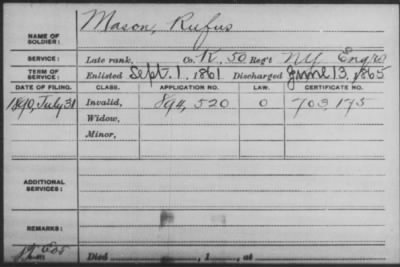 NAME OF SOLDIER: Mason, Rufus
SERVICE: Late rank, Co. K, 50 Reg't NY Engrs
TERM OF SERVICE: Enlisted Sept. 1, 1861 Discharged June 13, 1865
DATE OF FILING. CLASS. APPLICATION NO. LAW. CERTIFICATE NO.
1890, July 31 Invalid, 894,520 0 703,175
Widow,
Minor,
ADDITIONAL SERVICES:
REMARKS:
Died , 1 , at